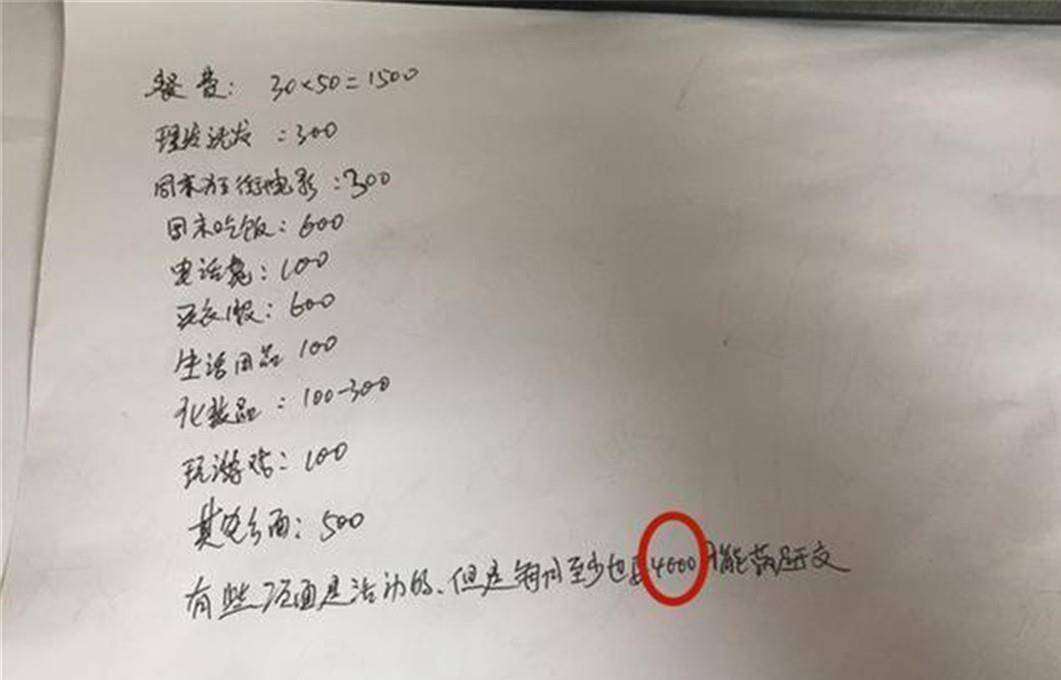 餐费：30×50=1500
理发洗发：300
周末逛街电影：300
周末吃饭：600
电话费：100
买衣服：600
生活用品 100
化妆品：100-300
玩游戏：100
其它方面：500
有些项目是活动的、但是每月至少也要4000才能满足开支